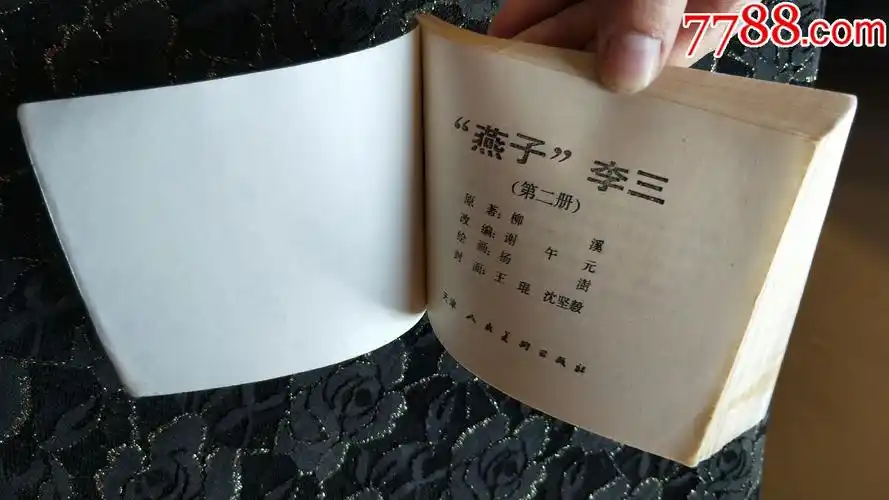 7788.com
“燕子”李三
(第二册)
原著:柳溪
改编:谢午元
绘画:杨澍
封面:王琨 沈坚毅
天津人民美术出版社